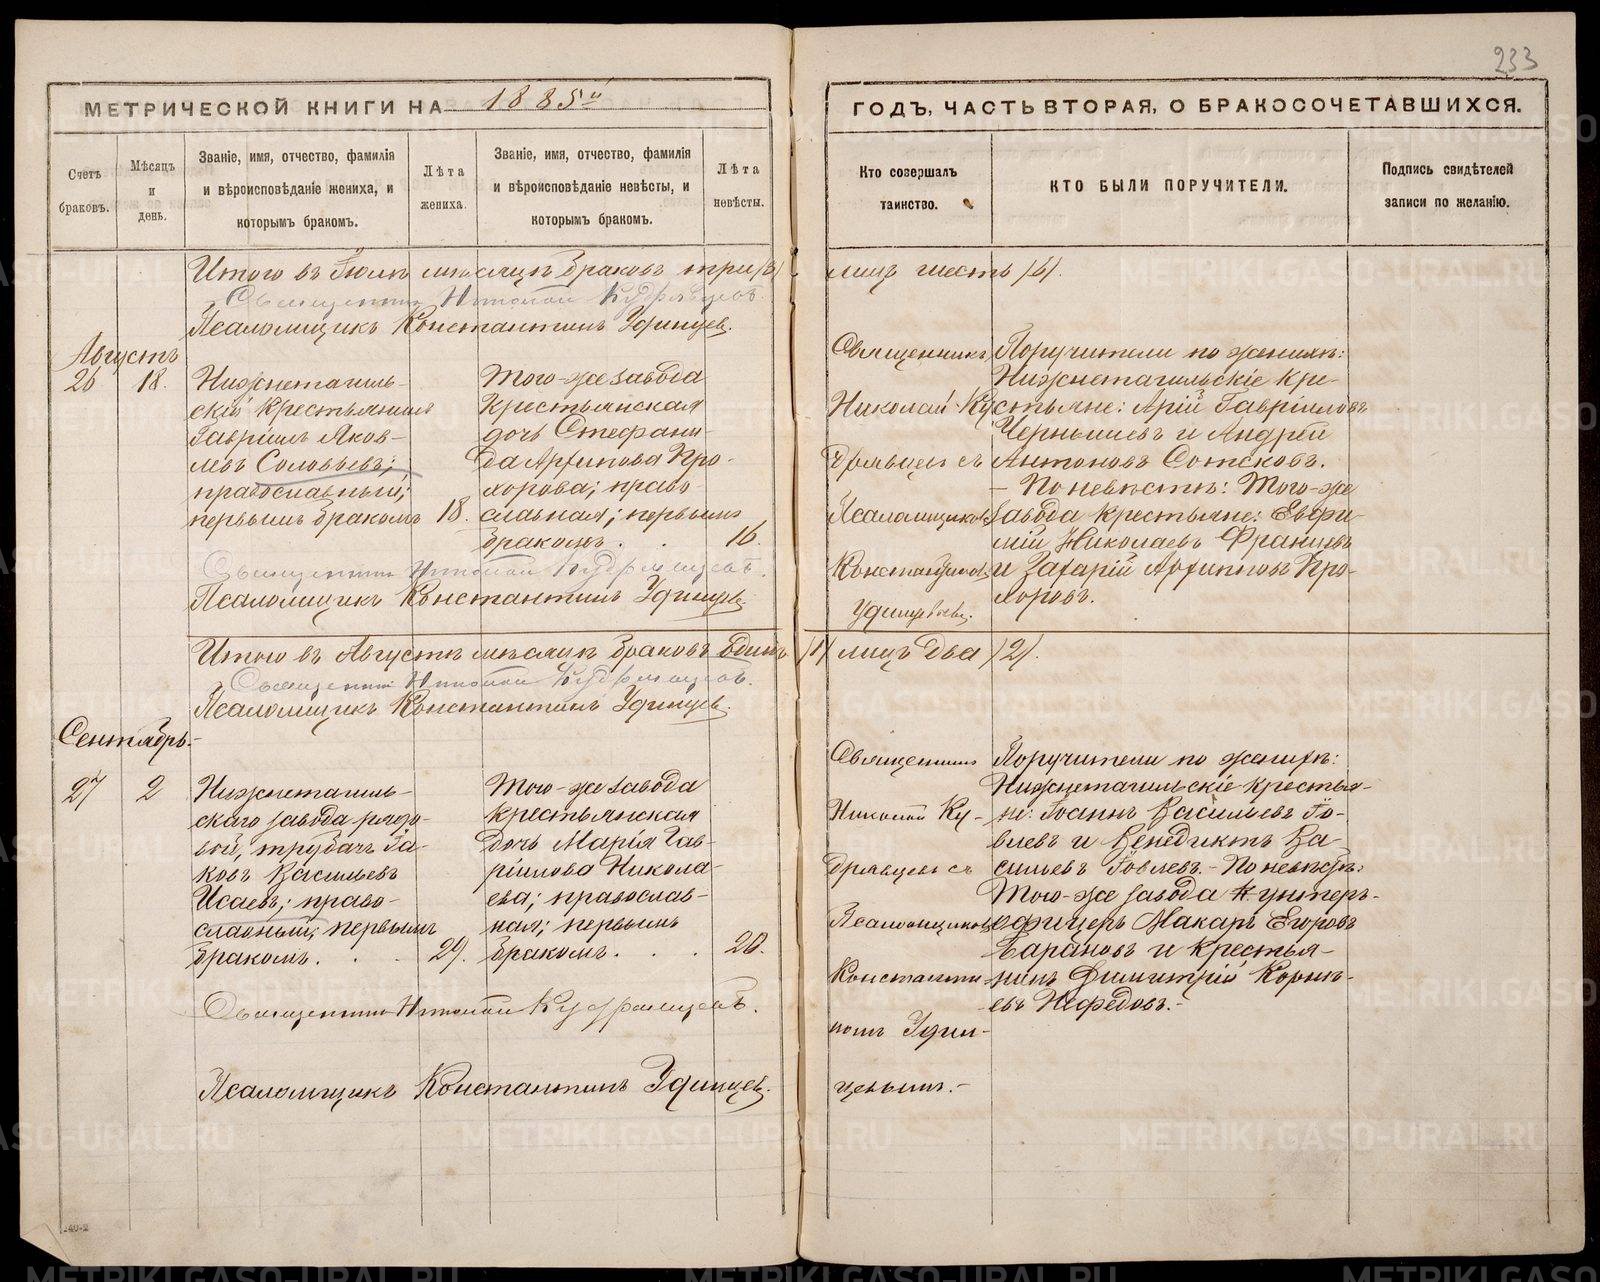 233
МЕТРИЧЕСКОЙ КНИГИ НА 1885й
ГОДЪ, ЧАСТЬ ВТОРАЯ, О БРАКОСОЧЕТАВШИХСЯ.
Счетъ
браковъ.
Мѣсяцъ
и
день.
Званіе, имя, отчество, фамилія
и вѣроисповѣданіе жениха, и
которымъ бракомъ.
Лѣта
жениха.
Званіе, имя, отчество, фамилія
и вѣроисповѣданіе невѣсты, и
которымъ бракомъ.
Лѣта
невѣсты.
Кто совершалъ
таинство.
КТО БЫЛИ ПОРУЧИТЕЛИ.
Подпись свидѣтелей
записи по желанію.
Итого въ Іюлѣ мѣсяцѣ браковъ три /3/
лицъ шесть /6/.
Священникъ Николай Кудрявцевъ.
Псаломщикъ Константинъ Удинцев.
Августъ
26
18.
Нижнетагиль-
скій крестьянинъ
Гавріилъ Яков-
левъ Соловьевъ;
православный;
первымъ бракомъ
18.
Того-же завода
крестьянская
дочь Стефани-
да Архипова Про-
хорова; право-
славная; первымъ
бракомъ . .
16.
Священникъ
Николай Ку-
дрявцевъ съ
Псаломщикомъ
Константиномъ
Удинцевымъ.
Поручители по женихѣ:
Нижнетагильскіе кре-
стьяне: Арій Гавріиловъ
Чернышевъ и Андрей
Антоновъ Сотсковъ.
– По невѣстѣ: Того-же
завода крестьяне: Евфи-
мій Николаевъ Францевъ
и Захарій Архиповъ Про-
хоровъ.
Священникъ Николай Кудрявцевъ.
Псаломщикъ Константинъ Удинцев.
Итого въ Августѣ мѣсяцѣ браковъ одинъ /1/ лицъ два /2/.
Священникъ Николай Кудрявцевъ.
Псаломщикъ Константинъ Удинцев.
Сентябрь.-
27
2
Нижнетагиль-
скаго завода рядо-
вой, трубачъ Іа-
ковъ Васильевъ
Исаевъ; право-
славный; первымъ
бракомъ. . .
29.
Того-же завода
крестьянская
дочь Марія Гав-
ріилова Никола-
ева; православ-
ная; первымъ
бракомъ. . .
20.
Священникъ
Николай Ку-
дрявцевъ съ
Псаломщикомъ
Константи-
номъ Удин-
цевымъ.-
Поручители по женихѣ:
Нижнетагильскіе крестья-
не: Іоаннъ Васильевъ Го-
влевъ и Венедиктъ Ва-
сильевъ Говлевъ.- По невѣстѣ:
Того-же завода унтеръ-
офицеръ Макаръ Егоровъ
Барановъ и крестья-
нинъ Димитрій Корни-
евъ Нефедовъ.-
Священникъ Николай Кудрявцевъ.
Псаломщикъ Константинъ Удинцев.
METRIKI.GASO-URAL.RU